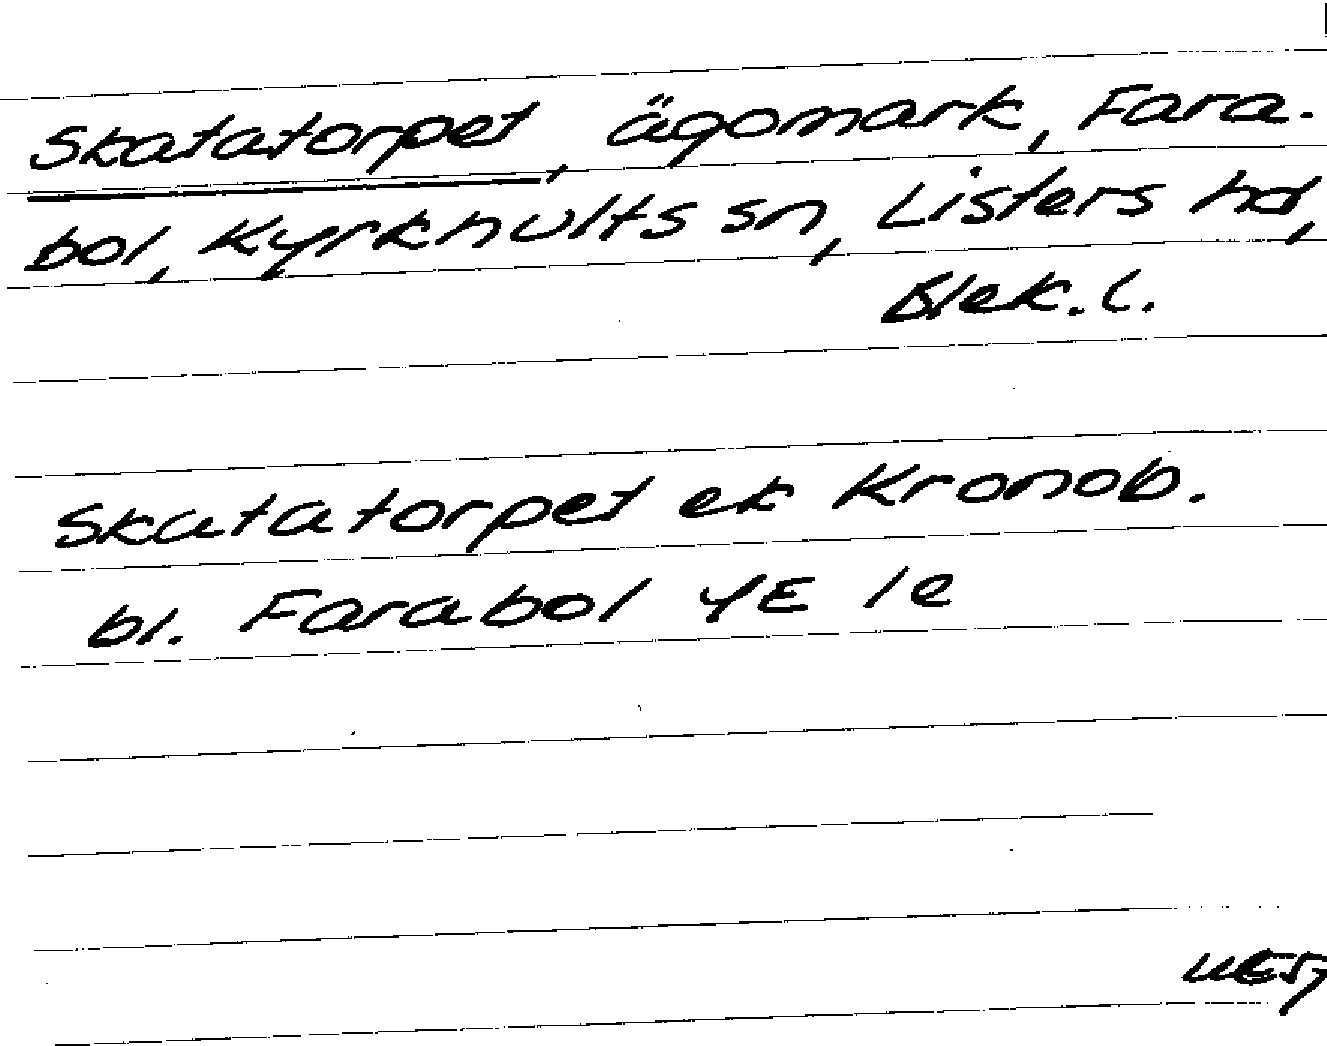 Skatatorpet, ägomark, Fara-
bol, Kyrkhults sn, Listers hd,
Blek. l.
Skatatorpet ek Kronob.
bl. Farabol 4E 1e